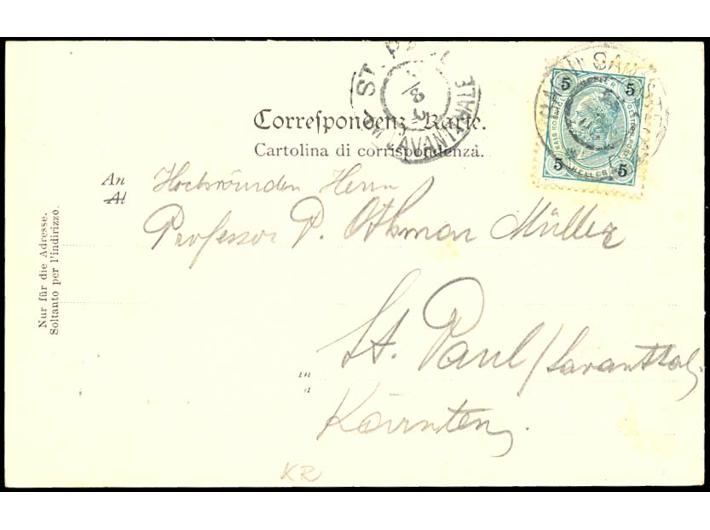 ST. PAUL
LAVANTTHALE
Correspondenz-Karte.
Cartolina di corrispondenza.
An
Al
Hochwürden Herrn
Professor P. Othmar Müller
St. Paul / Lavanttal,
in
Kärnten
Nur für die Adresse.
Soltanto per l'indirizzo.
5 5
5 HELLER 5
KR